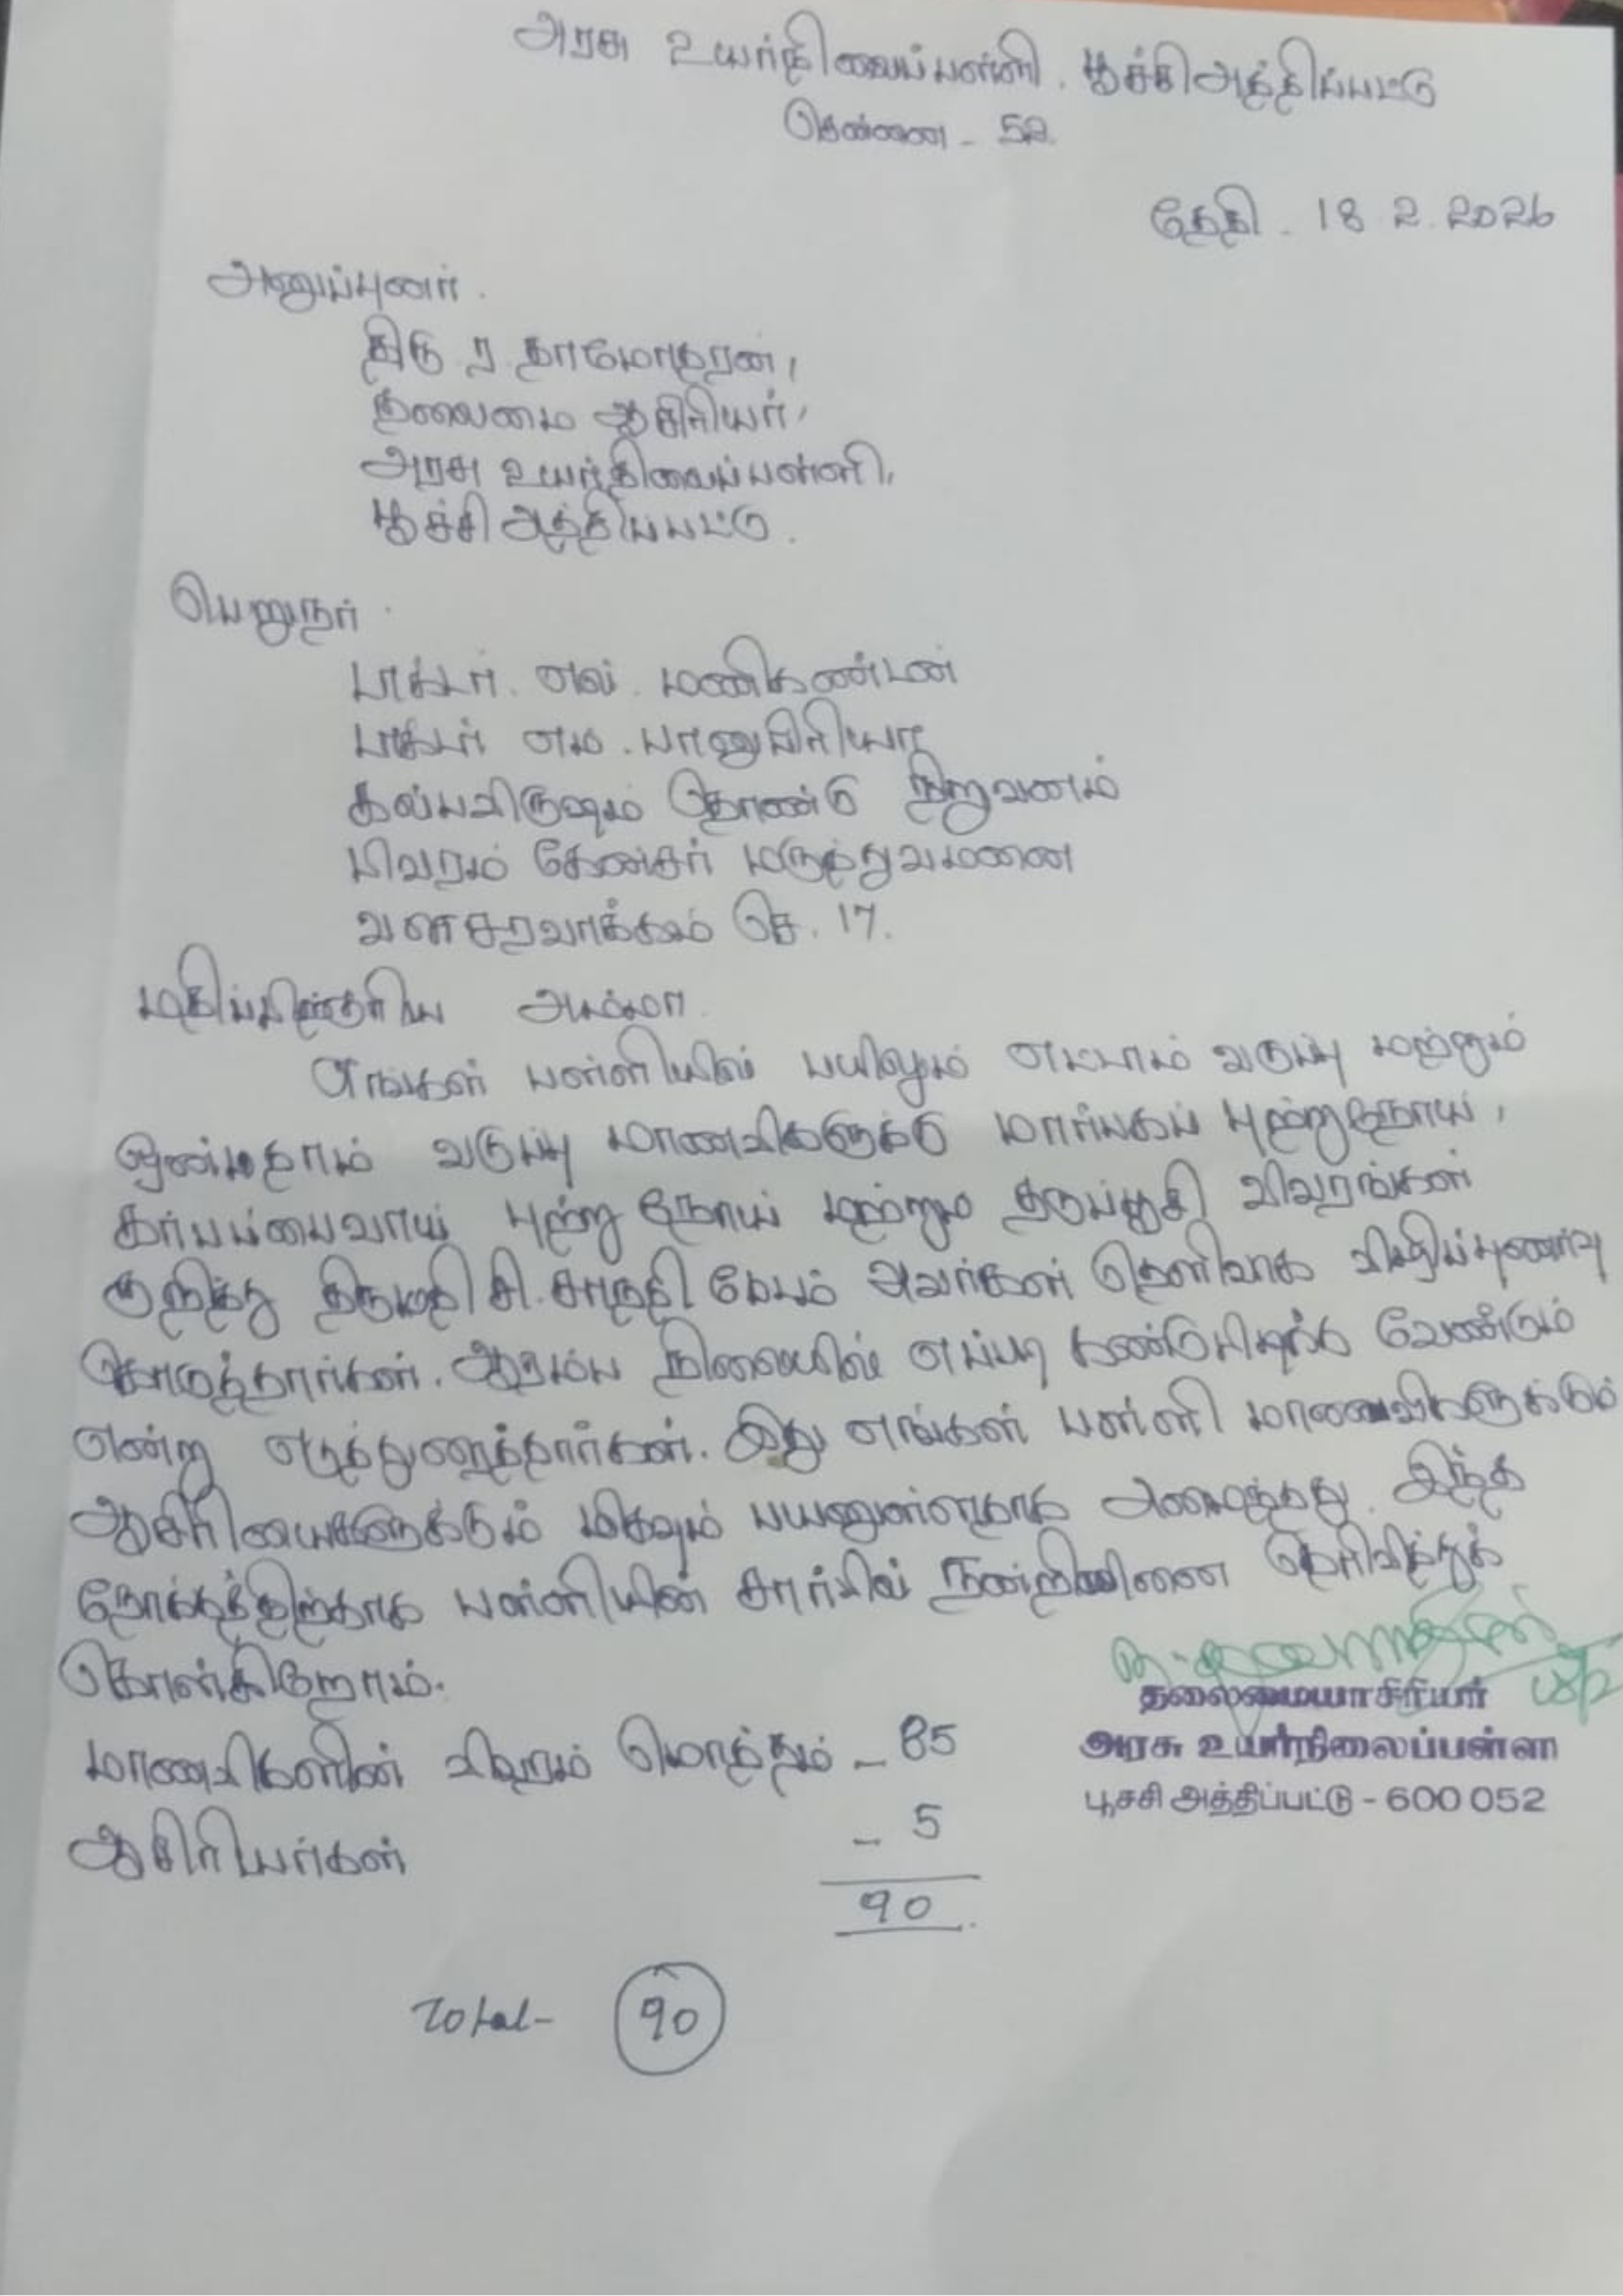 அரசு உயர்நிலைப்பள்ளி. பூச்சிஅத்திப்பட்டு
சென்னை - 52.
தேதி - 18 2. 2026
அனுப்புனர்.
திரு ர. தாமோதரன்,
தலைமை ஆசிரியர்,
அரசு உயர்நிலைப்பள்ளி,
பூச்சி அத்திப்பட்டு.
பெறுநர்.
டாக்டர். எல். மணிகண்டன்
டாக்டர் எம. பானுபிரியா
கல்பவிருஷம் தொண்டு நிறுவனம்
பிவரம் கேன்சர் மருத்துவமனை
வளசரவாக்கம் செ. 17.
மதிப்பிற்குரிய அம்மா.
எங்கள் பள்ளியில் பயிலும் எட்டாம் வகுப்பு மற்றும்
ஒன்பதாம் வகுப்பு மாணவிகளுக்கு மார்பகப் புற்றுநோய்,
கர்பப்பைவாய் புற்று நோய் மற்றும் தடுப்பூசி விவரங்கள்
குறித்து திருமதி சி. சாந்தி மேடம் அவர்கள் தெளிவாக விழிப்புணர்வு
கொடுத்தார்கள். ஆரம்ப நிலையில் எப்படி கண்டுபிடிக்க வேண்டும்
என்று எடுத்துரைத்தார்கள். இது எங்கள் பள்ளி மாணவிகளுக்கும்
ஆசிரியைகளுக்கும் மிகவும் பயனுள்ளதாக அமைந்தது. இந்த
நோக்கத்திற்காக பள்ளியின் சார்பில் நன்றியினை தெரிவித்துக்
கொள்கிறோம்.
தலைமையாசிரியர்
மாணவிகளின் விவரம் மொத்தம் - 85
அரசு உயர்நிலைப்பள்ளி
பூச்சி அத்திப்பட்டு - 600 052
ஆசிரியர்கள் - 5
90
Total - 90